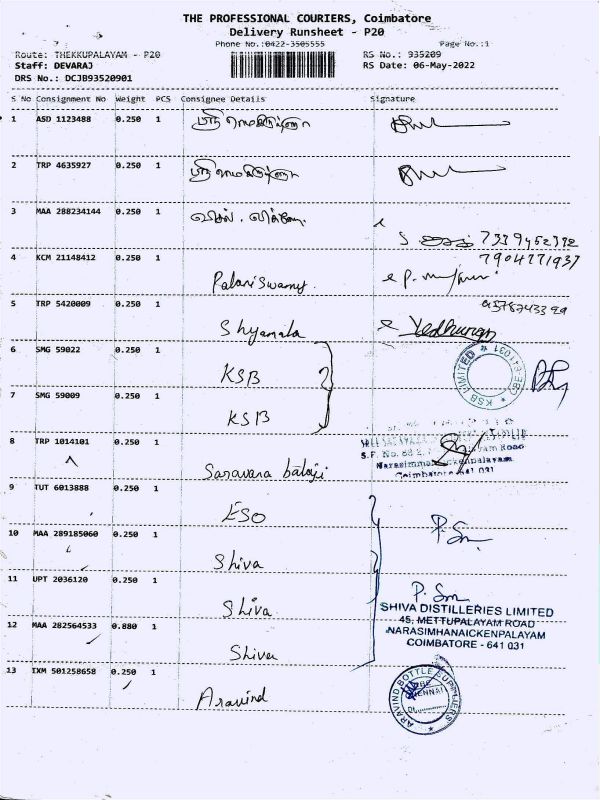 THE PROFESSIONAL COURIERS, Coimbatore
Delivery Runsheet - P20
Phone No.:0422-3505555 Page No.:1
Route: THEKKUPALAYAM - P20 RS No.: 935209
Staff: DEVARAJ RS Date: 06-May-2022
DRS No.: DCJB93520901
S No Consignment No Weight PCS Consignee Details Signature
1 ASD 1123488 0.250 1
2 TRP 4635927 0.250 1
3 MAA 288234144 0.250 1
7339452392
4 KCM 21148412 0.250 1 7904771937
Palani Swamy.
5 TRP 5420009 0.250 1
Shyamala Yedhuran
6 SMG 59022 0.250 1
KSB
KSB LIMITED
7 SMG 59009 0.250 1
KSB
8 TRP 1014101 0.250 1
Saravana balaji
S.F. No.
Coimbatore 641 031
9 TUT 6013888 0.250 1
ESO
10 MAA 289185060 0.250 1
Shiva
11 UPT 2036120 0.250 1
Shiva
P. Sm
SHIVA DISTILLERIES LIMITED
45, METTUPALAYAM ROAD
NARASIMHANAICKENPALAYAM
COIMBATORE - 641 031
12 MAA 282564533 0.880 1
Shiva
13 IXM 501258658 0.250 1
Aravind
ARAVIND BOTTLE SUPPLIERS